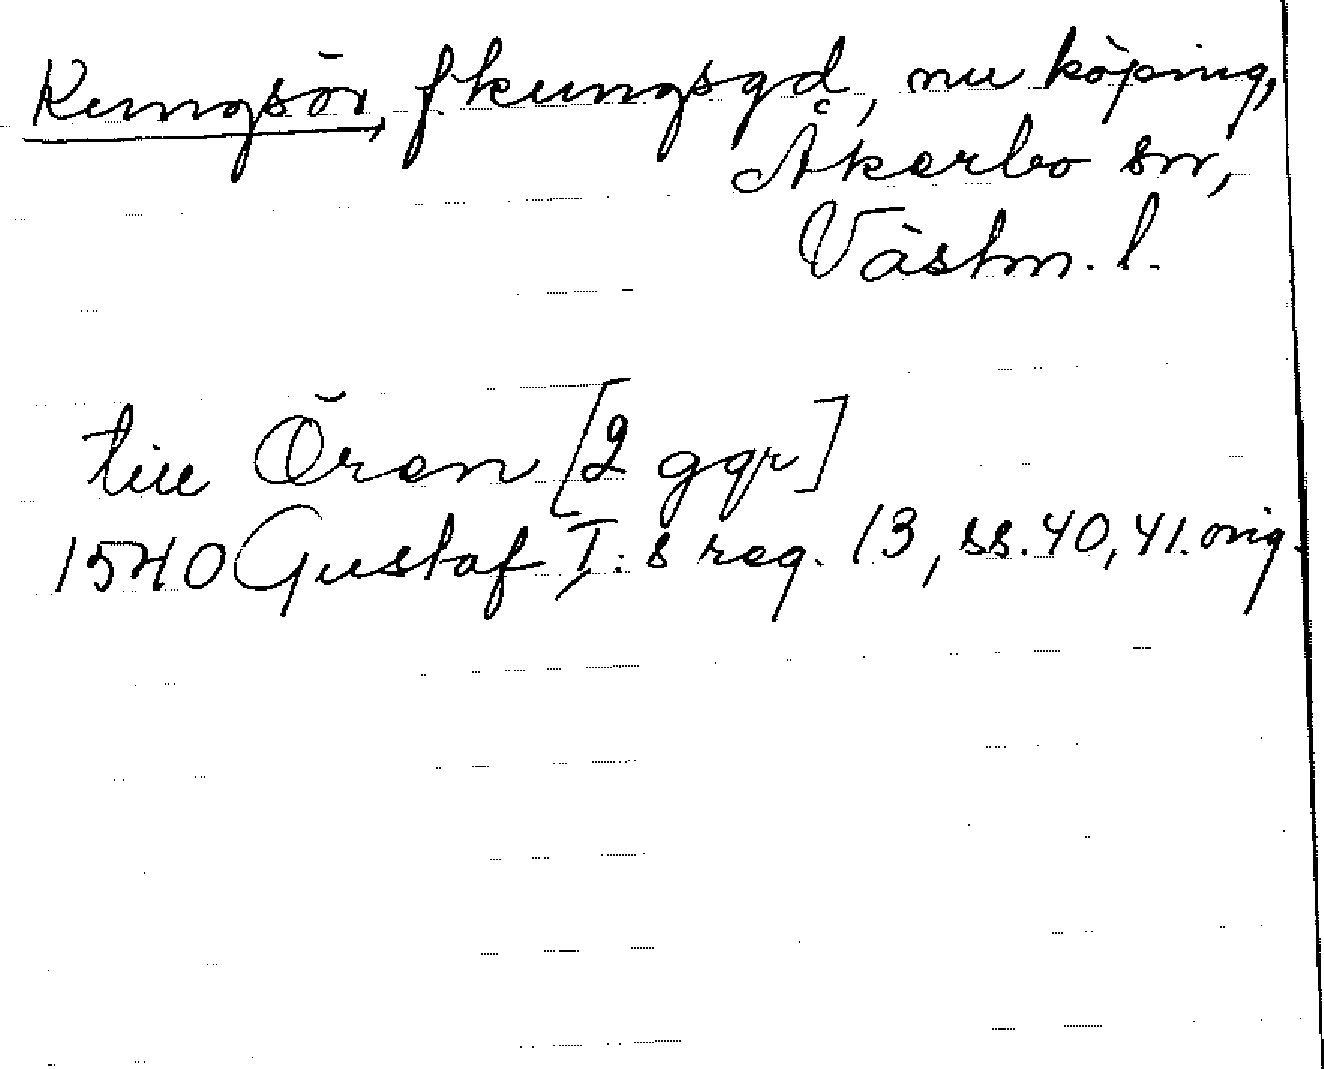 Kungsör, f kungsgd, nu köping,
Åkerbo snr,
Västm. l.
till Ören [2 ggr]
1540 Gustaf I:s reg. 13, ss. 40, 41. orig.